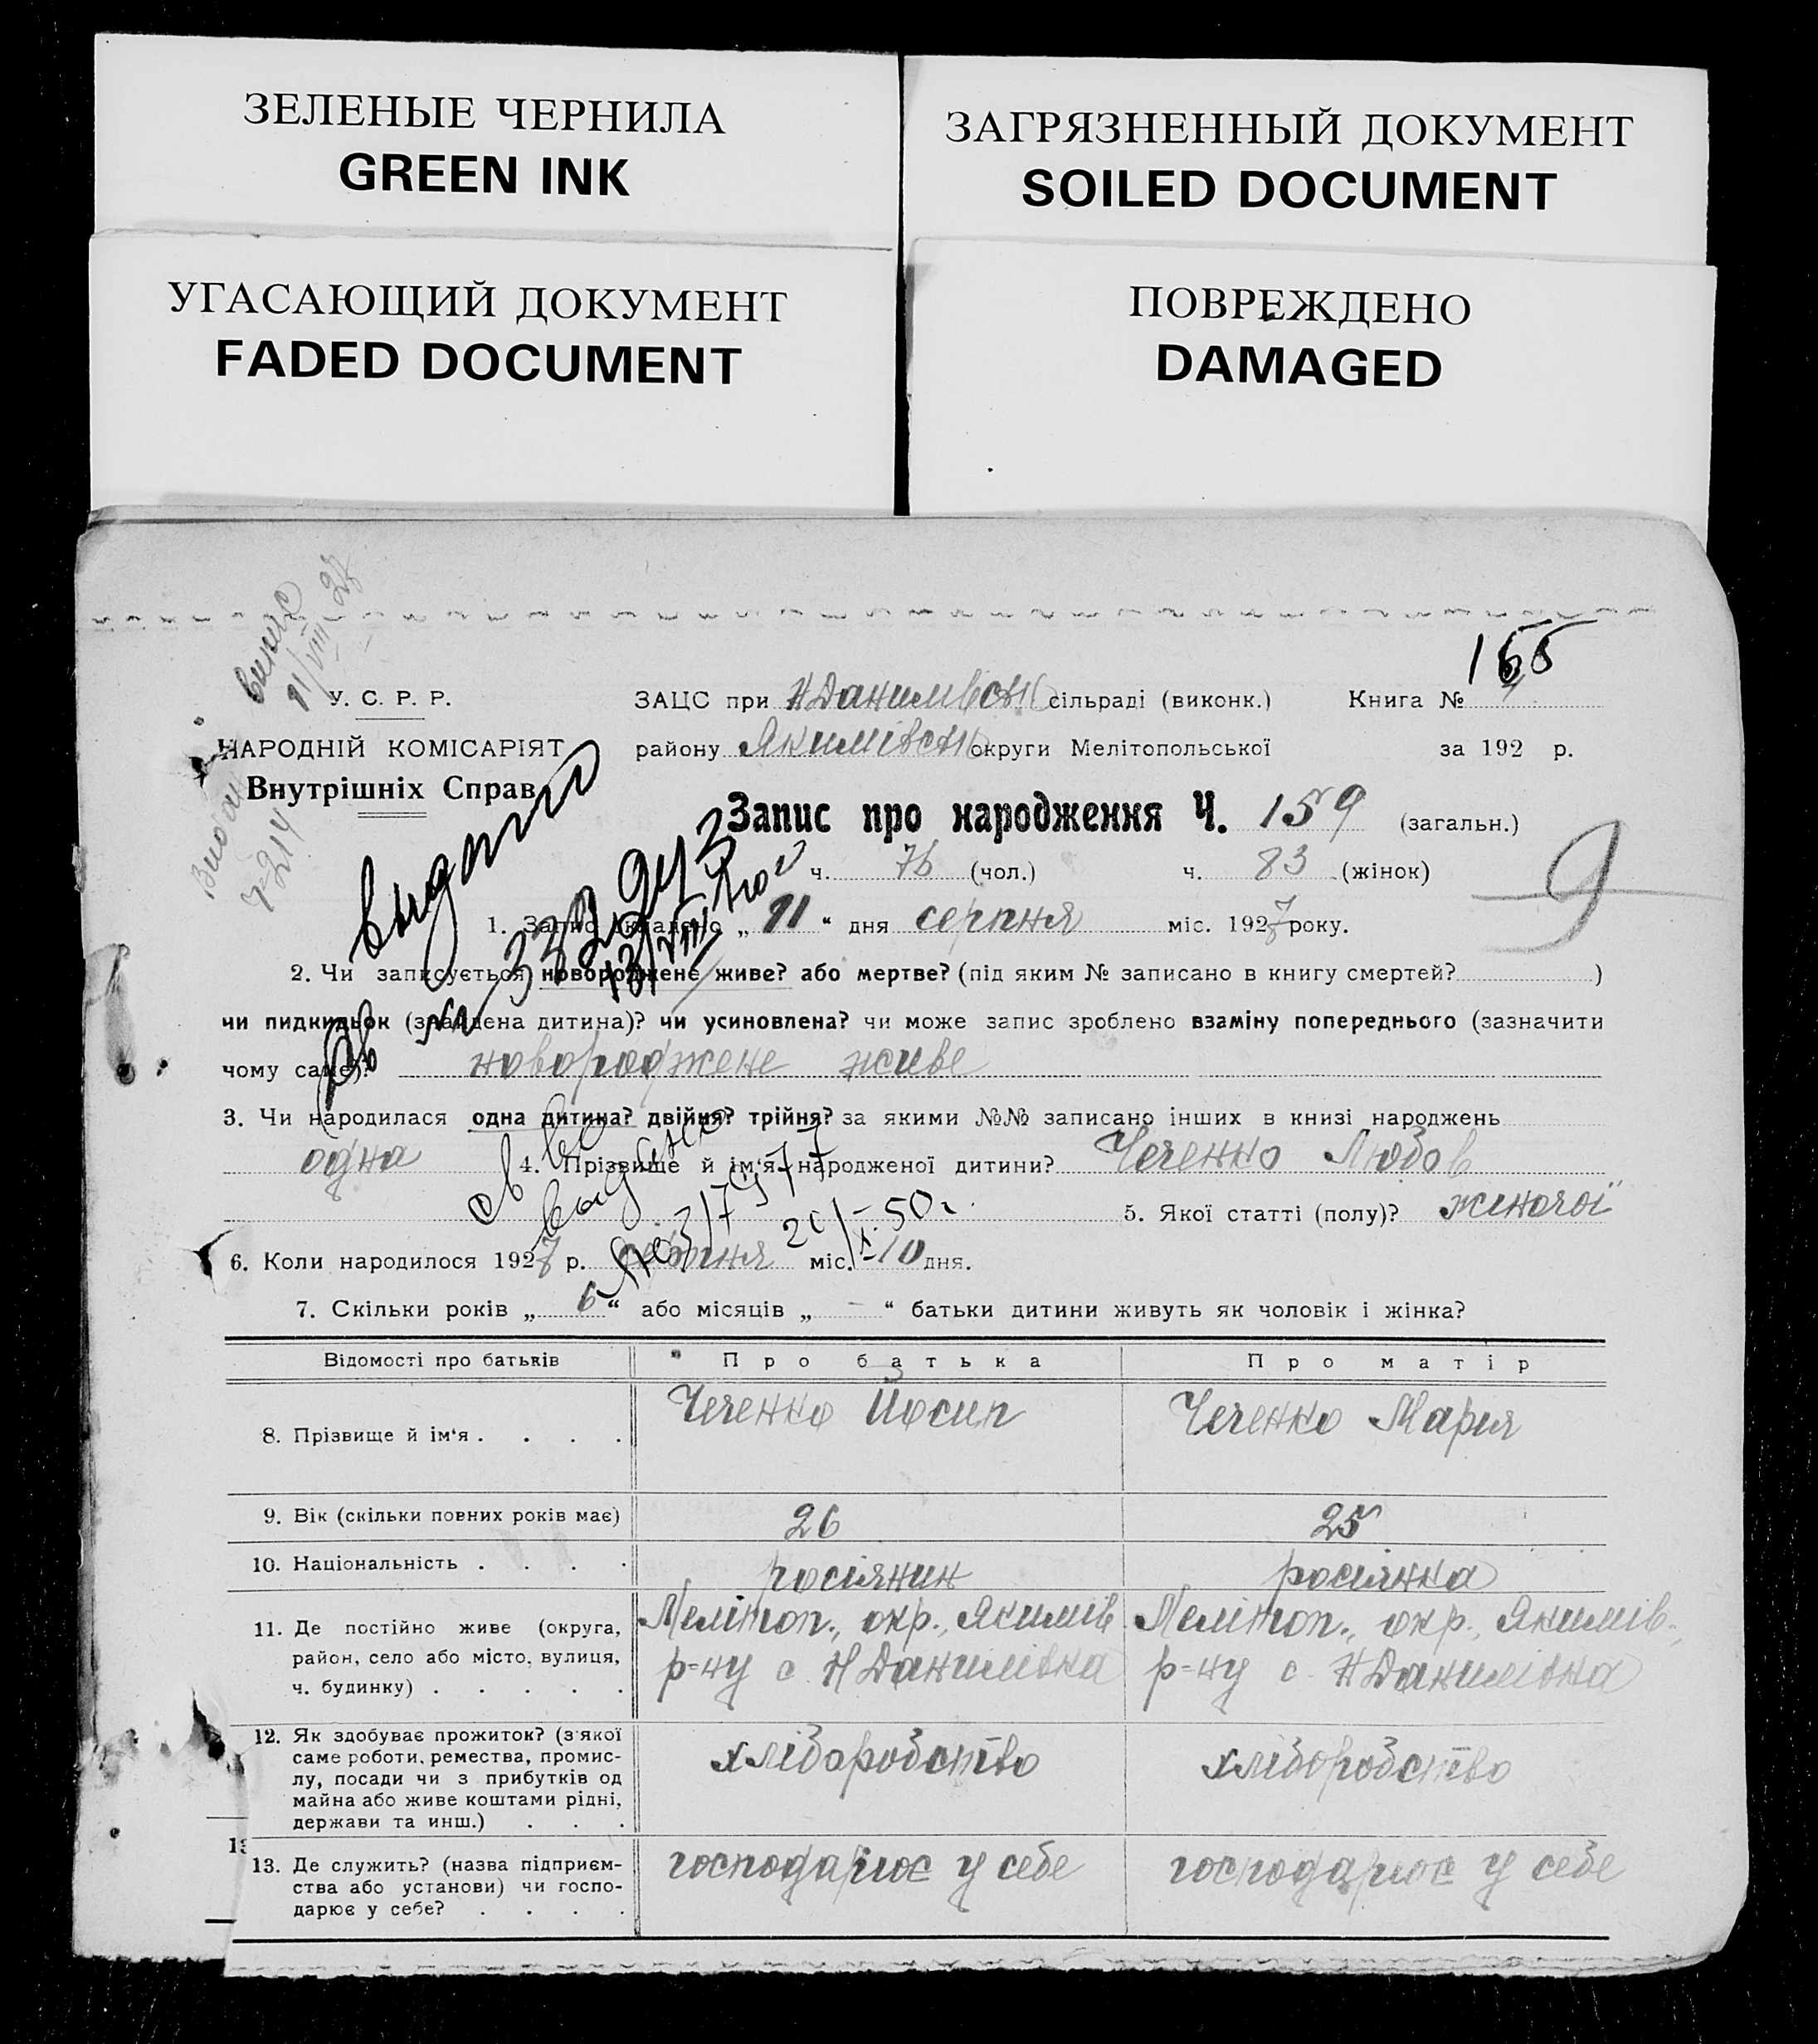 ЗЕЛЕНЫЕ ЧЕРНИЛА
GREEN INK
ЗАГРЯЗНЕННЫЙ ДОКУМЕНТ
SOILED DOCUMENT
УГАСАЮЩИЙ ДОКУМЕНТ
FADED DOCUMENT
ПОВРЕЖДЕНО
DAMAGED
У. С. Р. Р.
НАРОДНІЙ КОМІСАРІЯТ
Внутрішніх Справ
ЗАЦС при Н Данилівськ сільраді (виконк.) Книга №
району Якимівськ округи Мелітопольської за 192 р.
Запис про народження Ч. 159 (загальн.)
ч. 76 (чол.) ч. 83 (жінок)
9
1. Запис складено „ 11 “ дня серпня міс. 1927 року.
2. Чи записується новороджене живе? або мертве? (під яким № записано в книгу смертей? )
чи пидкидьок (знайдена дитина)? чи усиновлена? чи може запис зроблено взаміну попереднього (зазначити
чому саме)? новороджене живе
3. Чи народилася одна дитина? двійня? трійня? за якими №№ записано інших в книзі народжень
одна 4. Прізвище й ім‘я народженої дитини? Чеченко Любов
5. Якої статті (полу)? жіночої
6. Коли народилося 1927 р. серпня міс. 10 дня.
7. Скільки років „ 6 “ або місяців „ - “ батьки дитини живуть як чоловік і жінка?
Відомості про батьків Про батька Про матір
8. Прізвище й ім‘я . . . . Чеченко Йосип Чеченко Мария
9. Вік (скільки повних років має) 26 25
10. Національність . . . . росіянин росіянка
11. Де постійно живе (округа, Мелітоп., окр., Якимів. Мелітоп., окр., Якимів.,
район, село або місто, вулиця, р-ну с. Н Данилівка р-ну с. Н Данилівка
ч. будинку) . . . . .
12. Як здобуває прожиток? (з'якої
саме роботи, ремества, промис- хліборобство хліборобство
лу, посади чи з прибутків од
майна або живе коштами рідні,
держави та инш.) . . .
13. Де служить? (назва підприєм- господарює у себе господарює у себе
ства або установи) чи госпо-
дарює у себе? . . . .